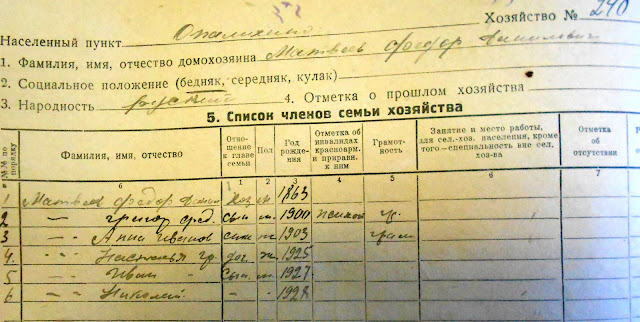 Населенный пункт Опалихино Хозяйство № 240
1. Фамилия, имя, отчество домохозяина Матвеев Федор Данилович
2. Социальное положение (бедняк, середняк, кулак)
3. Народность русский 4. Отметка о прошлом хозяйства
5. Список членов семьи хозяйства
№№ по порядку Фамилия, имя, отчество Отношение к главе семьи Пол Год рождения Отметка об инвалидах красноарм. и приравн. к ним Грамотность Занятие и место работы, для сел.-хоз. населения, кроме того—специальность вне сел. хоз-ва Отметка об отсутствии
б 1 2 3 4 5 6 7
1 Матвеев Федор Данил Хоз м. 1863
2 -"- Григор Фед. сын м. 1900 гр.
3 -"- Анна Иванов ж 1903 грам
4. -"- Наталья Гр. доч. ж. 1925
5 -"- Иван - Сын. м. 1927
6 -"- Николай - - 1928